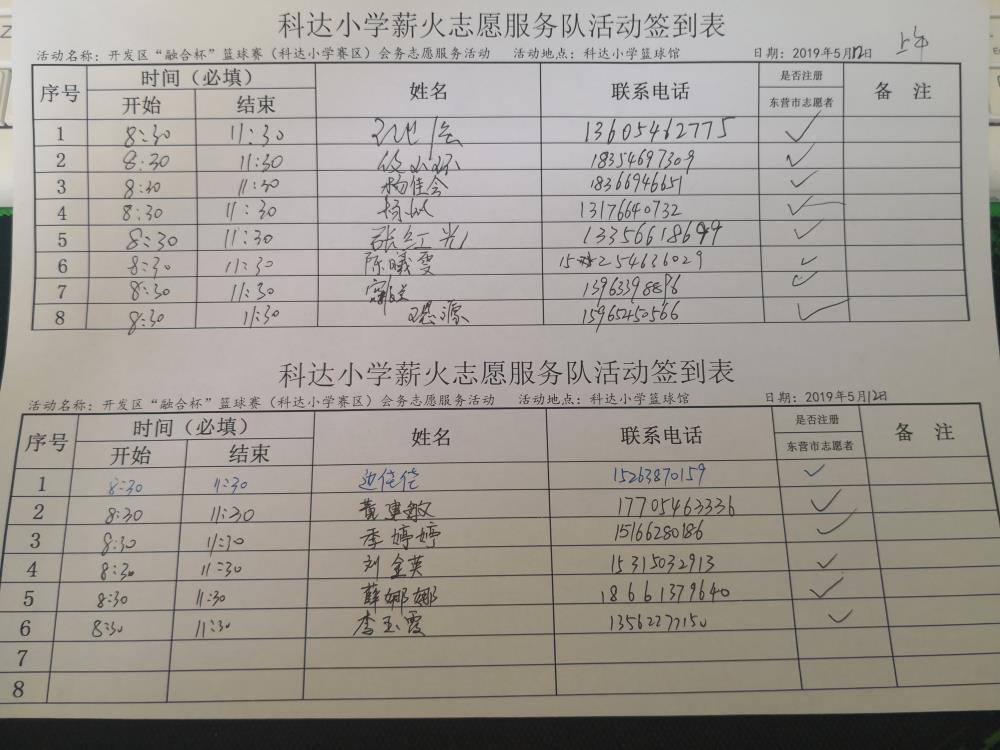 科达小学薪火志愿服务队活动签到表
活动名称：开发区“融合杯”篮球赛（科达小学赛区）会务志愿服务活动 活动地点：科达小学篮球馆 日期：2019年5月12日 上午
序号 时间（必填） 姓名 联系电话 是否注册 备 注
开始 结束 东营市志愿者
1 8:30 11:30 13605462775 ✓
2 8:30 11:30 18354697309 ✓
3 8:30 11:30 杨佳会 18366946651 ✓
4 8:30 11:30 13176640732 ✓
5 8:30 11:30 张红光 ✓
6 8:30 11:30 陈曦雯 ✓
7 8:30 11:30 13963398896 ✓
8 8:30 11:30 15965450566 ✓
科达小学薪火志愿服务队活动签到表
活动名称：开发区“融合杯”篮球赛（科达小学赛区）会务志愿服务活动 活动地点：科达小学篮球馆 日期：2019年5月12日
序号 时间（必填） 姓名 联系电话 是否注册 备 注
开始 结束 东营市志愿者
1 8:30 11:30 边佳佳 15263870159 ✓
2 8:30 11:30 黄建敏 17705463336 ✓
3 8:30 11:30 季婷婷 15166280186 ✓
4 8:30 11:30 刘金英 15315032913 ✓
5 8:30 11:30 薛娜娜 18661379640 ✓
6 8:30 11:30 李玉霞 13562277150 ✓
7
8